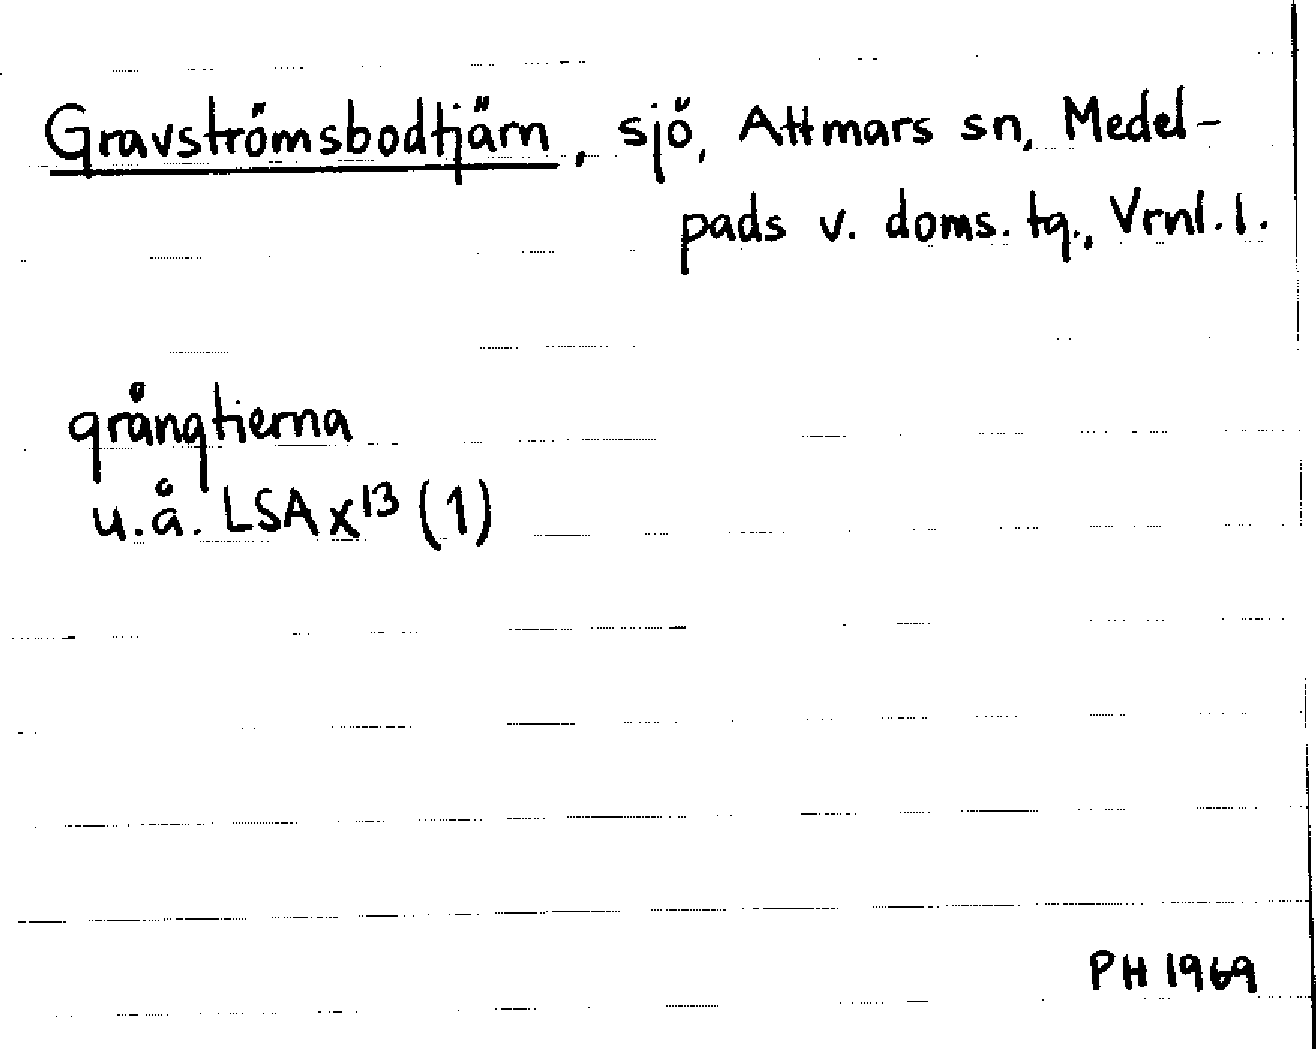 Gravströmsbodtjärn, sjö, Attmars sn, Medel-
pads v. doms. tg., Vrnl. l.
grångtierna
u.å. LSA X¹³ (1)
PH 1969